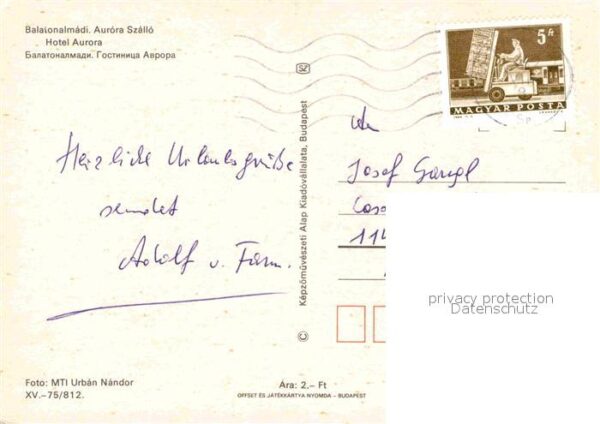 Balatonalmádi. Auróra Szálló
Hotel Aurora
Балатоналмади. Гостиница Аврора
5 Ft
MAGYAR POSTA
Herzliche Urlaubsgrüße
sendet
Adolf u. Fam.
Josef Gangl
114
Képzőművészeti Alap Kiadóvállalata, Budapest
privacy protection
Datenschutz
Foto: MTI Urbán Nándor
XV.–75/812.
Ára: 2.– Ft
OFFSET ÉS JÁTÉKKÁRTYA NYOMDA – BUDAPEST